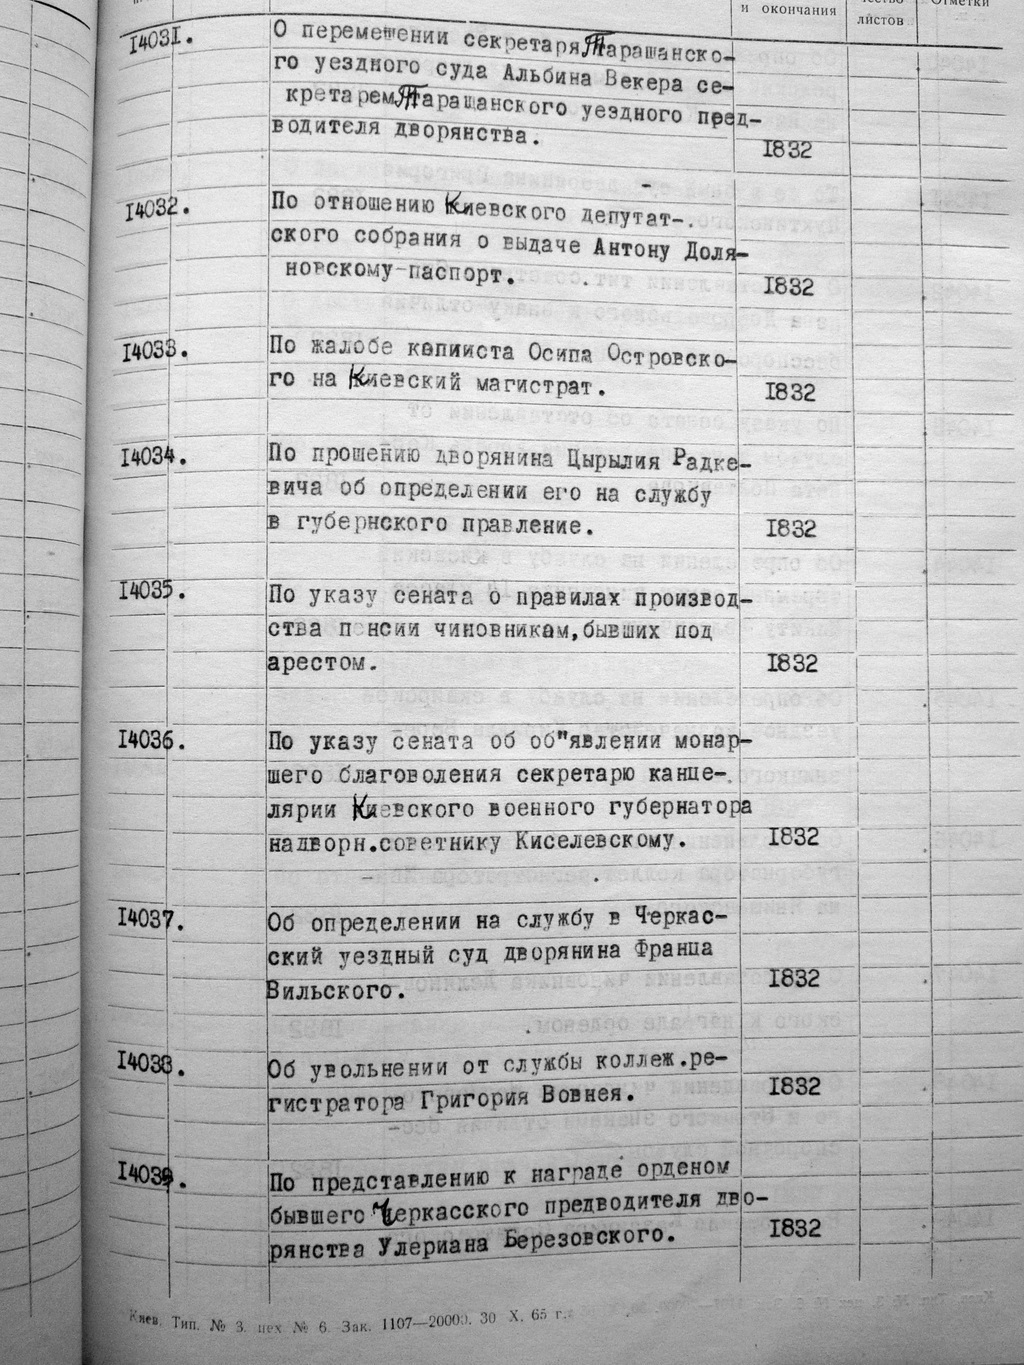 и окончания
листов
Отметки
I4031.
О перемещении секретаря Таращанско-
го уездного суда Альбина Векера се-
кретарем Таращанского уездного пред-
водителя дворянства.
I832
I4032.
По отношению Киевского депутат-
ского собрания о выдаче Антону Доля-
новскому паспорт.
I832
I4033.
По жалобе копииста Осипа Островско-
го на Киевский магистрат.
I832
I4034.
По прошению дворянина Цырылия Радке-
вича об определении его на службу
в губернского правление.
I832
I4035.
По указу сената о правилах производ-
ства п нсии чиновникам,бывших под
арестом.
I832
I4036.
По указу сената об об"явлении монар-
шего благоволения секретарю канце-
лярии Киевского военного губернатора
надворн.советнику Киселевскому.
I832
I4037.
Об определении на службу в Черкас-
ский уездный суд дворянина Франца
Вильского.
I832
I4038.
Об увольнении от службы коллеж.ре-
гистратора Григория Вовнея.
I832
I4039.
По представлению к награде орденом
бывшего Черкасского предводителя дво-
рянства Улериана Березовского.
I832
Киев. Тип. № 3. цех № 6. Зак. 1107—20000. 30 X. 65 г.